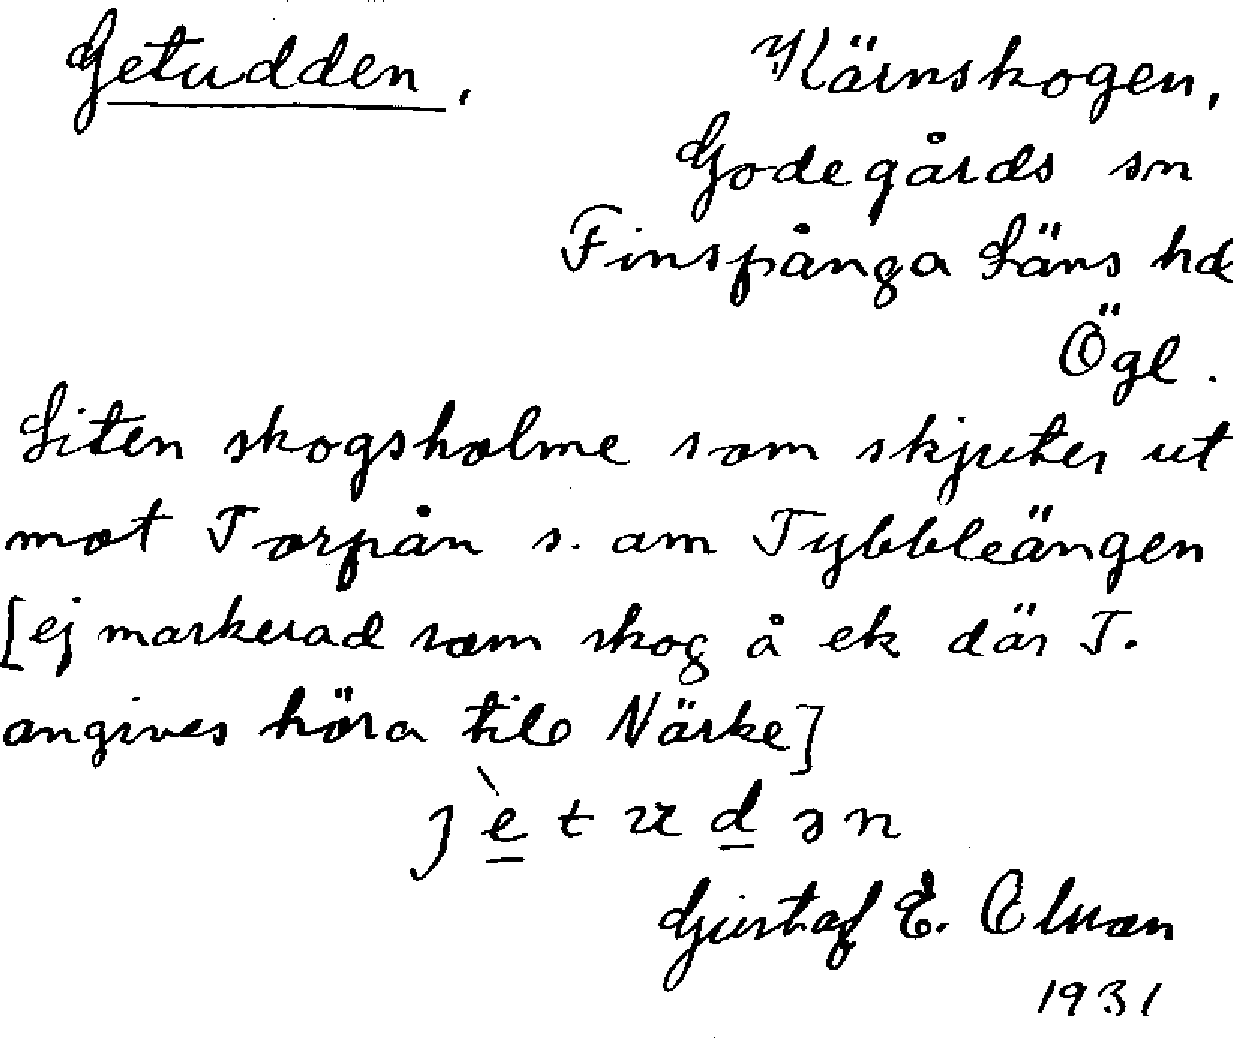 Getudden, Kärnskogen,
Godegårds sn
Finspånga Läns hd
Ögl.
Liten skogsholme som skjuter ut
mot Torpån s. om Tybbleängen
[ej markerad som skog å ek där T.
angives höra till Närke]
Gustaf E. Olsson
1931